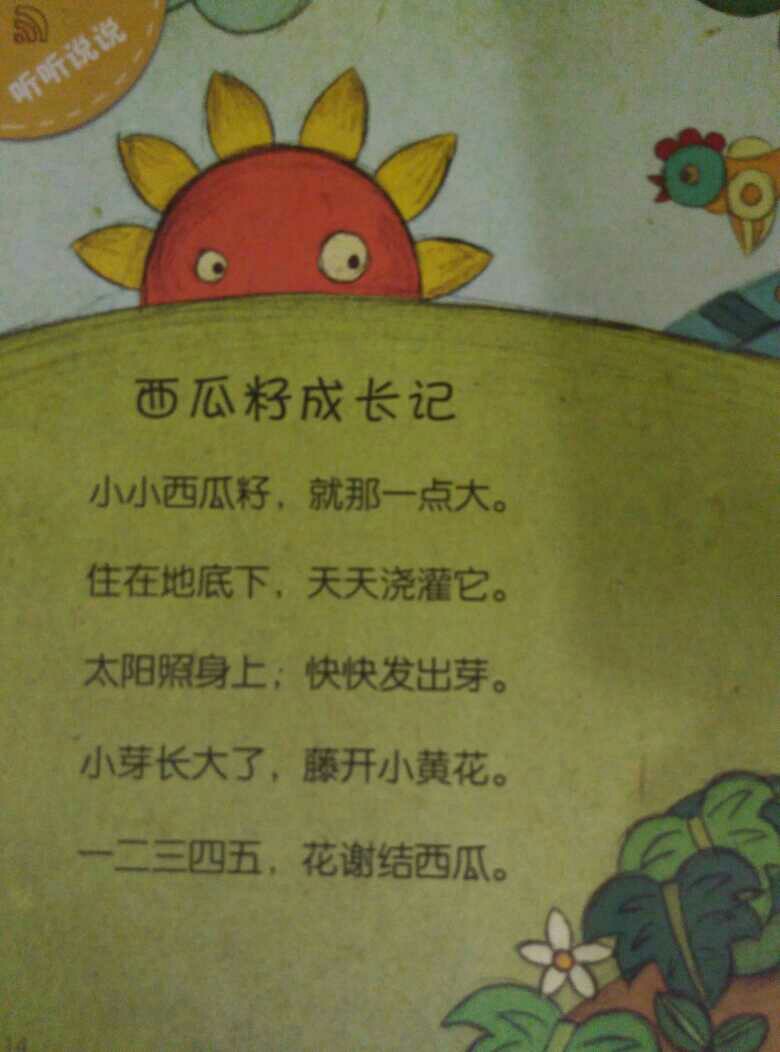 听听说说
西瓜籽成长记
小小西瓜籽，就那一点大。
住在地底下，天天浇灌它。
太阳照身上，快快发出芽。
小芽长大了，藤开小黄花。
一二三四五，花谢结西瓜。
14